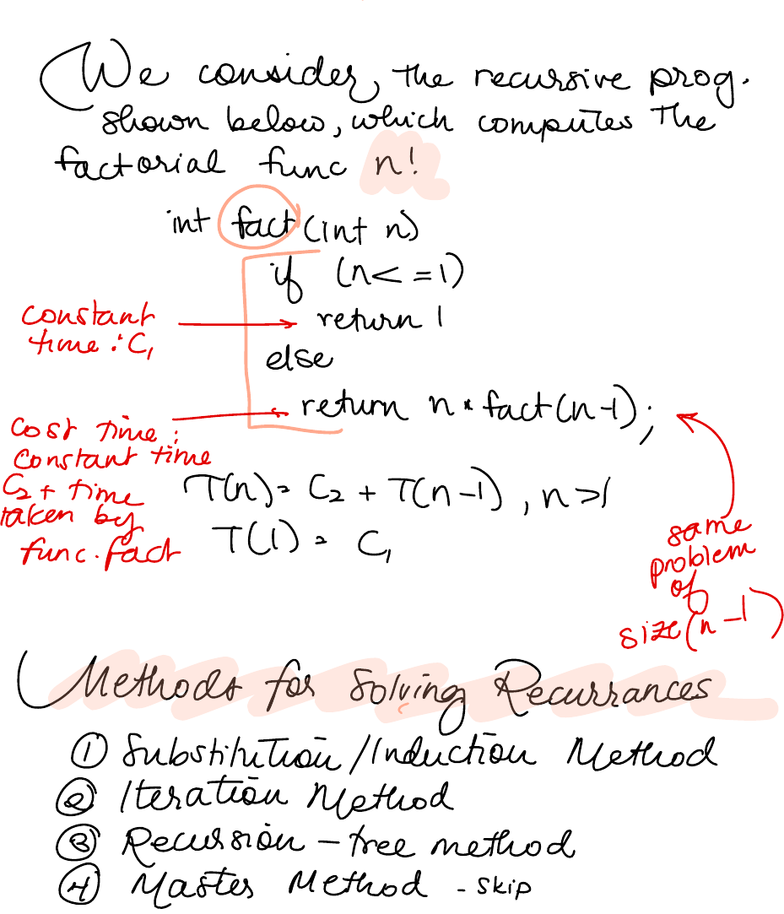 We consider, the recursive prog.
shown below, which computes the
factorial func n!
int fact (int n)
if (n<=1)
constant
time : C₁
return 1
else
return n * fact(n-1);
cost time :
constant time
C₂ + time
taken by
func. fact
T(n) = C₂ + T(n-1), n>1
T(1) = C₁
same
problem
of
size(n-1)
Methods for Solving Recurrances
① Substitution/Induction Method
② Iteration Method
③ Recursion - tree method
④ Master Method - skip